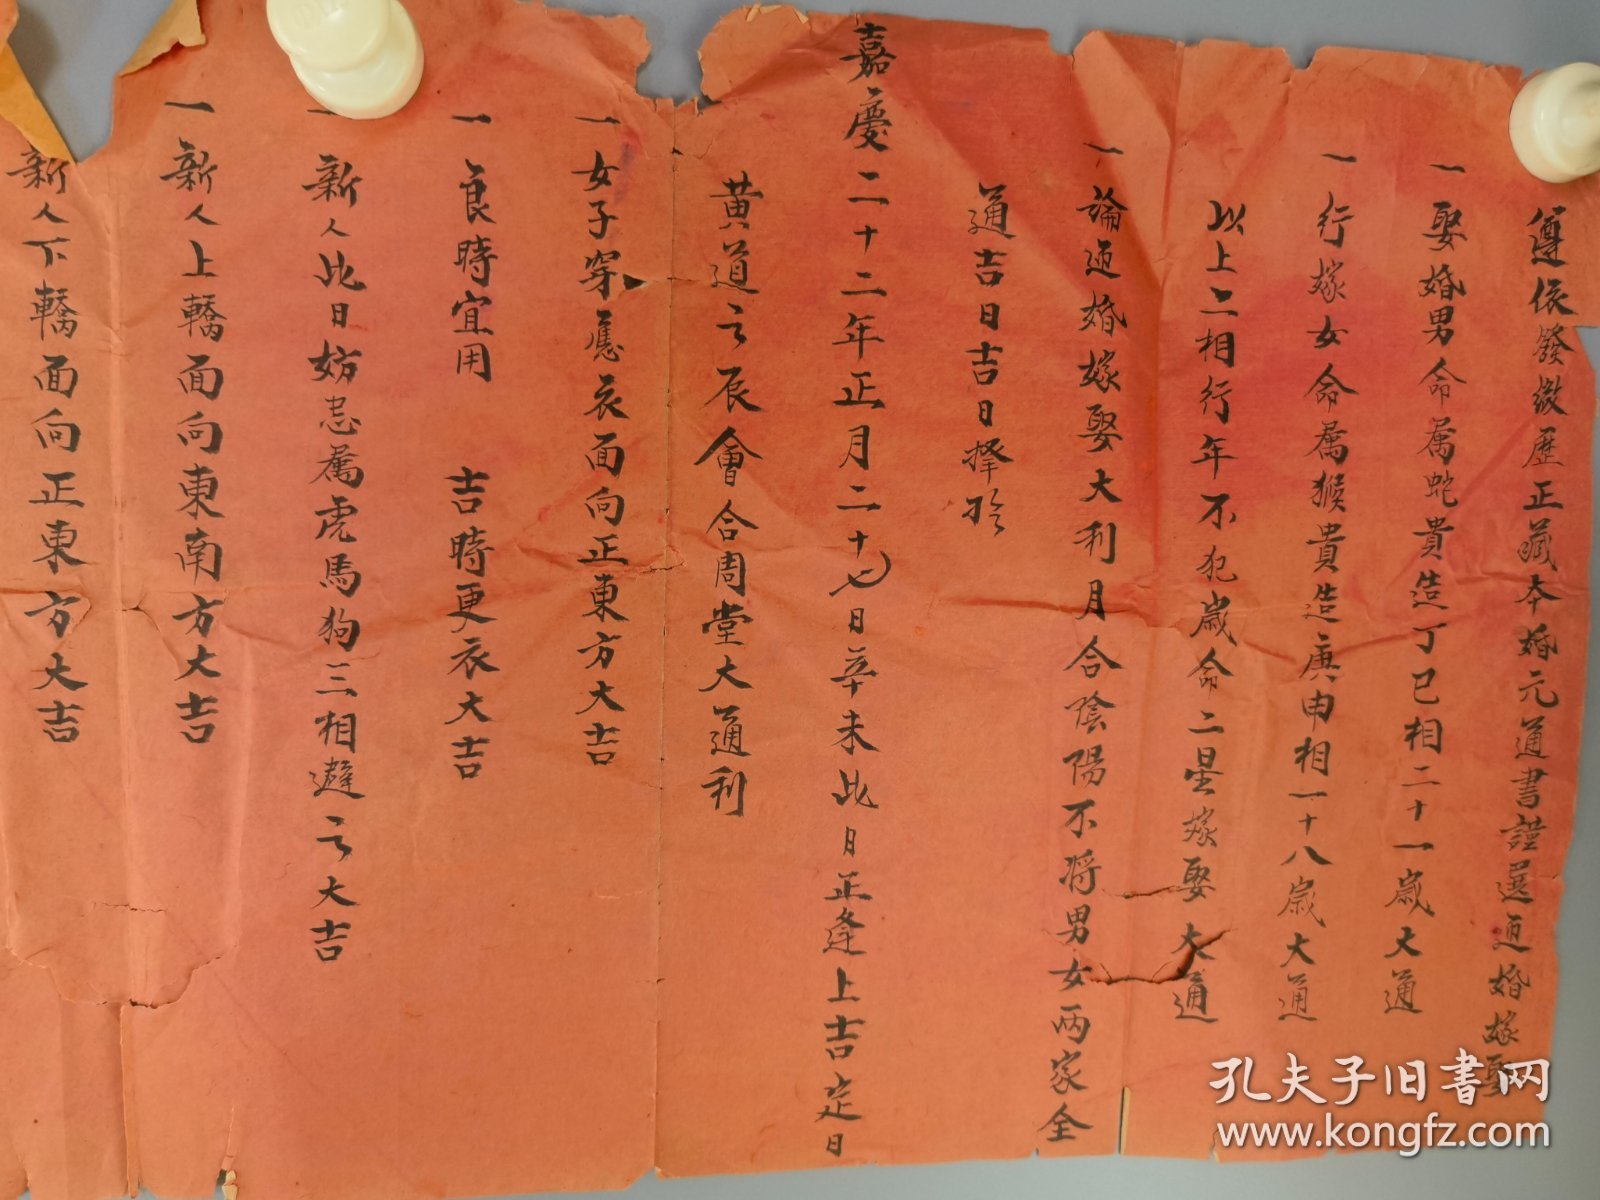 遵依發微歷正藏本婚元通書謹選迊婚嫁娶
一娶婚男命属蛇貴造丁巳相二十一歲大通
一行嫁女命属猴貴造庚申相一十八歲大通
以上二相行年不犯歲命二星嫁娶大通
一論迊婚嫁娶大利月合陰陽不将男女两家全
通吉日吉日擇於
嘉慶二十二年正月二十七日辛未此日正逢上吉定日
黄道之辰會合周堂大通利
一女子穿應衣面向正東方大吉
一良時宜用 吉時更衣大吉
一新人此日妨忌属虎馬狗三相避之大吉
一新人上轎面向東南方大吉
新人下轎面向正東方大吉
孔夫子旧書网
www.kongfz.com